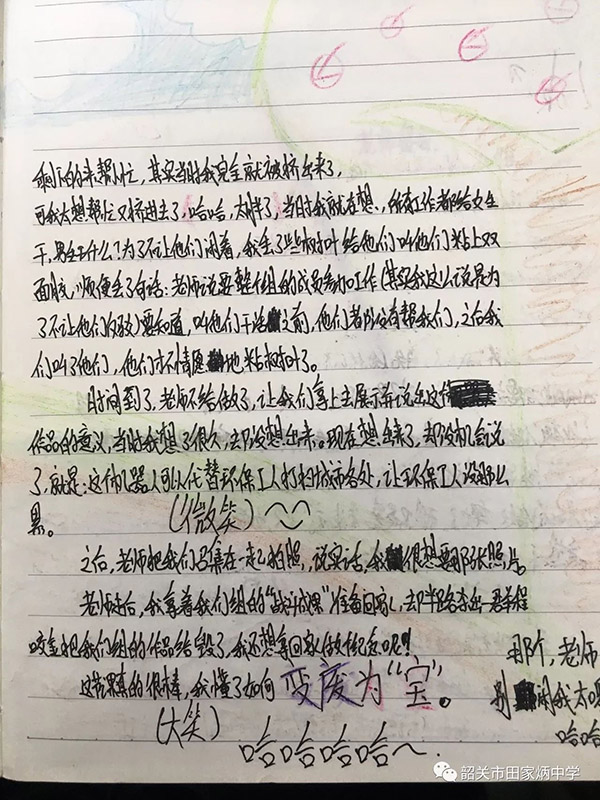 剩下的来帮忙，其实当时我完全就被挤出来了，
可我太想帮忙又挤进去了，哈哈，太棒了，当时我就在想，所有工作都给女生
干，男生干什么？为了不让他们闲着，我拿了些树叶给他们叫他们粘上双
面胶，顺便丢了句话：老师说要整个组的成员参加工作（其实我这么说是为
了不让他们），要知道，叫他们干活之前，他们都没有帮我们，之后我
们叫了他们，他们才不情愿地粘树叶了。
时间到了，老师不给做了，让我们拿上去展示并说出这个
作品的意义，当时我想了很久，去即没想出来。现在想出来了，却没机会说
了，就是：这个机器人可以代替环保工人打扫城市各处，让环保工人没那么
累。（微笑）
之后，老师把我们召集在一起拍照，说实话，我很想要那张照片。
老师走后，我拿着我们组的"战斗成果"准备回家，却半路
把我们组的作品给毁了，我还想拿回家做纪念呢！
这节课真的很棒，我懂了如何变废为"宝"。
（大笑）
哈哈哈哈～
那个，老师
别
哈哈
韶关市田家炳中学